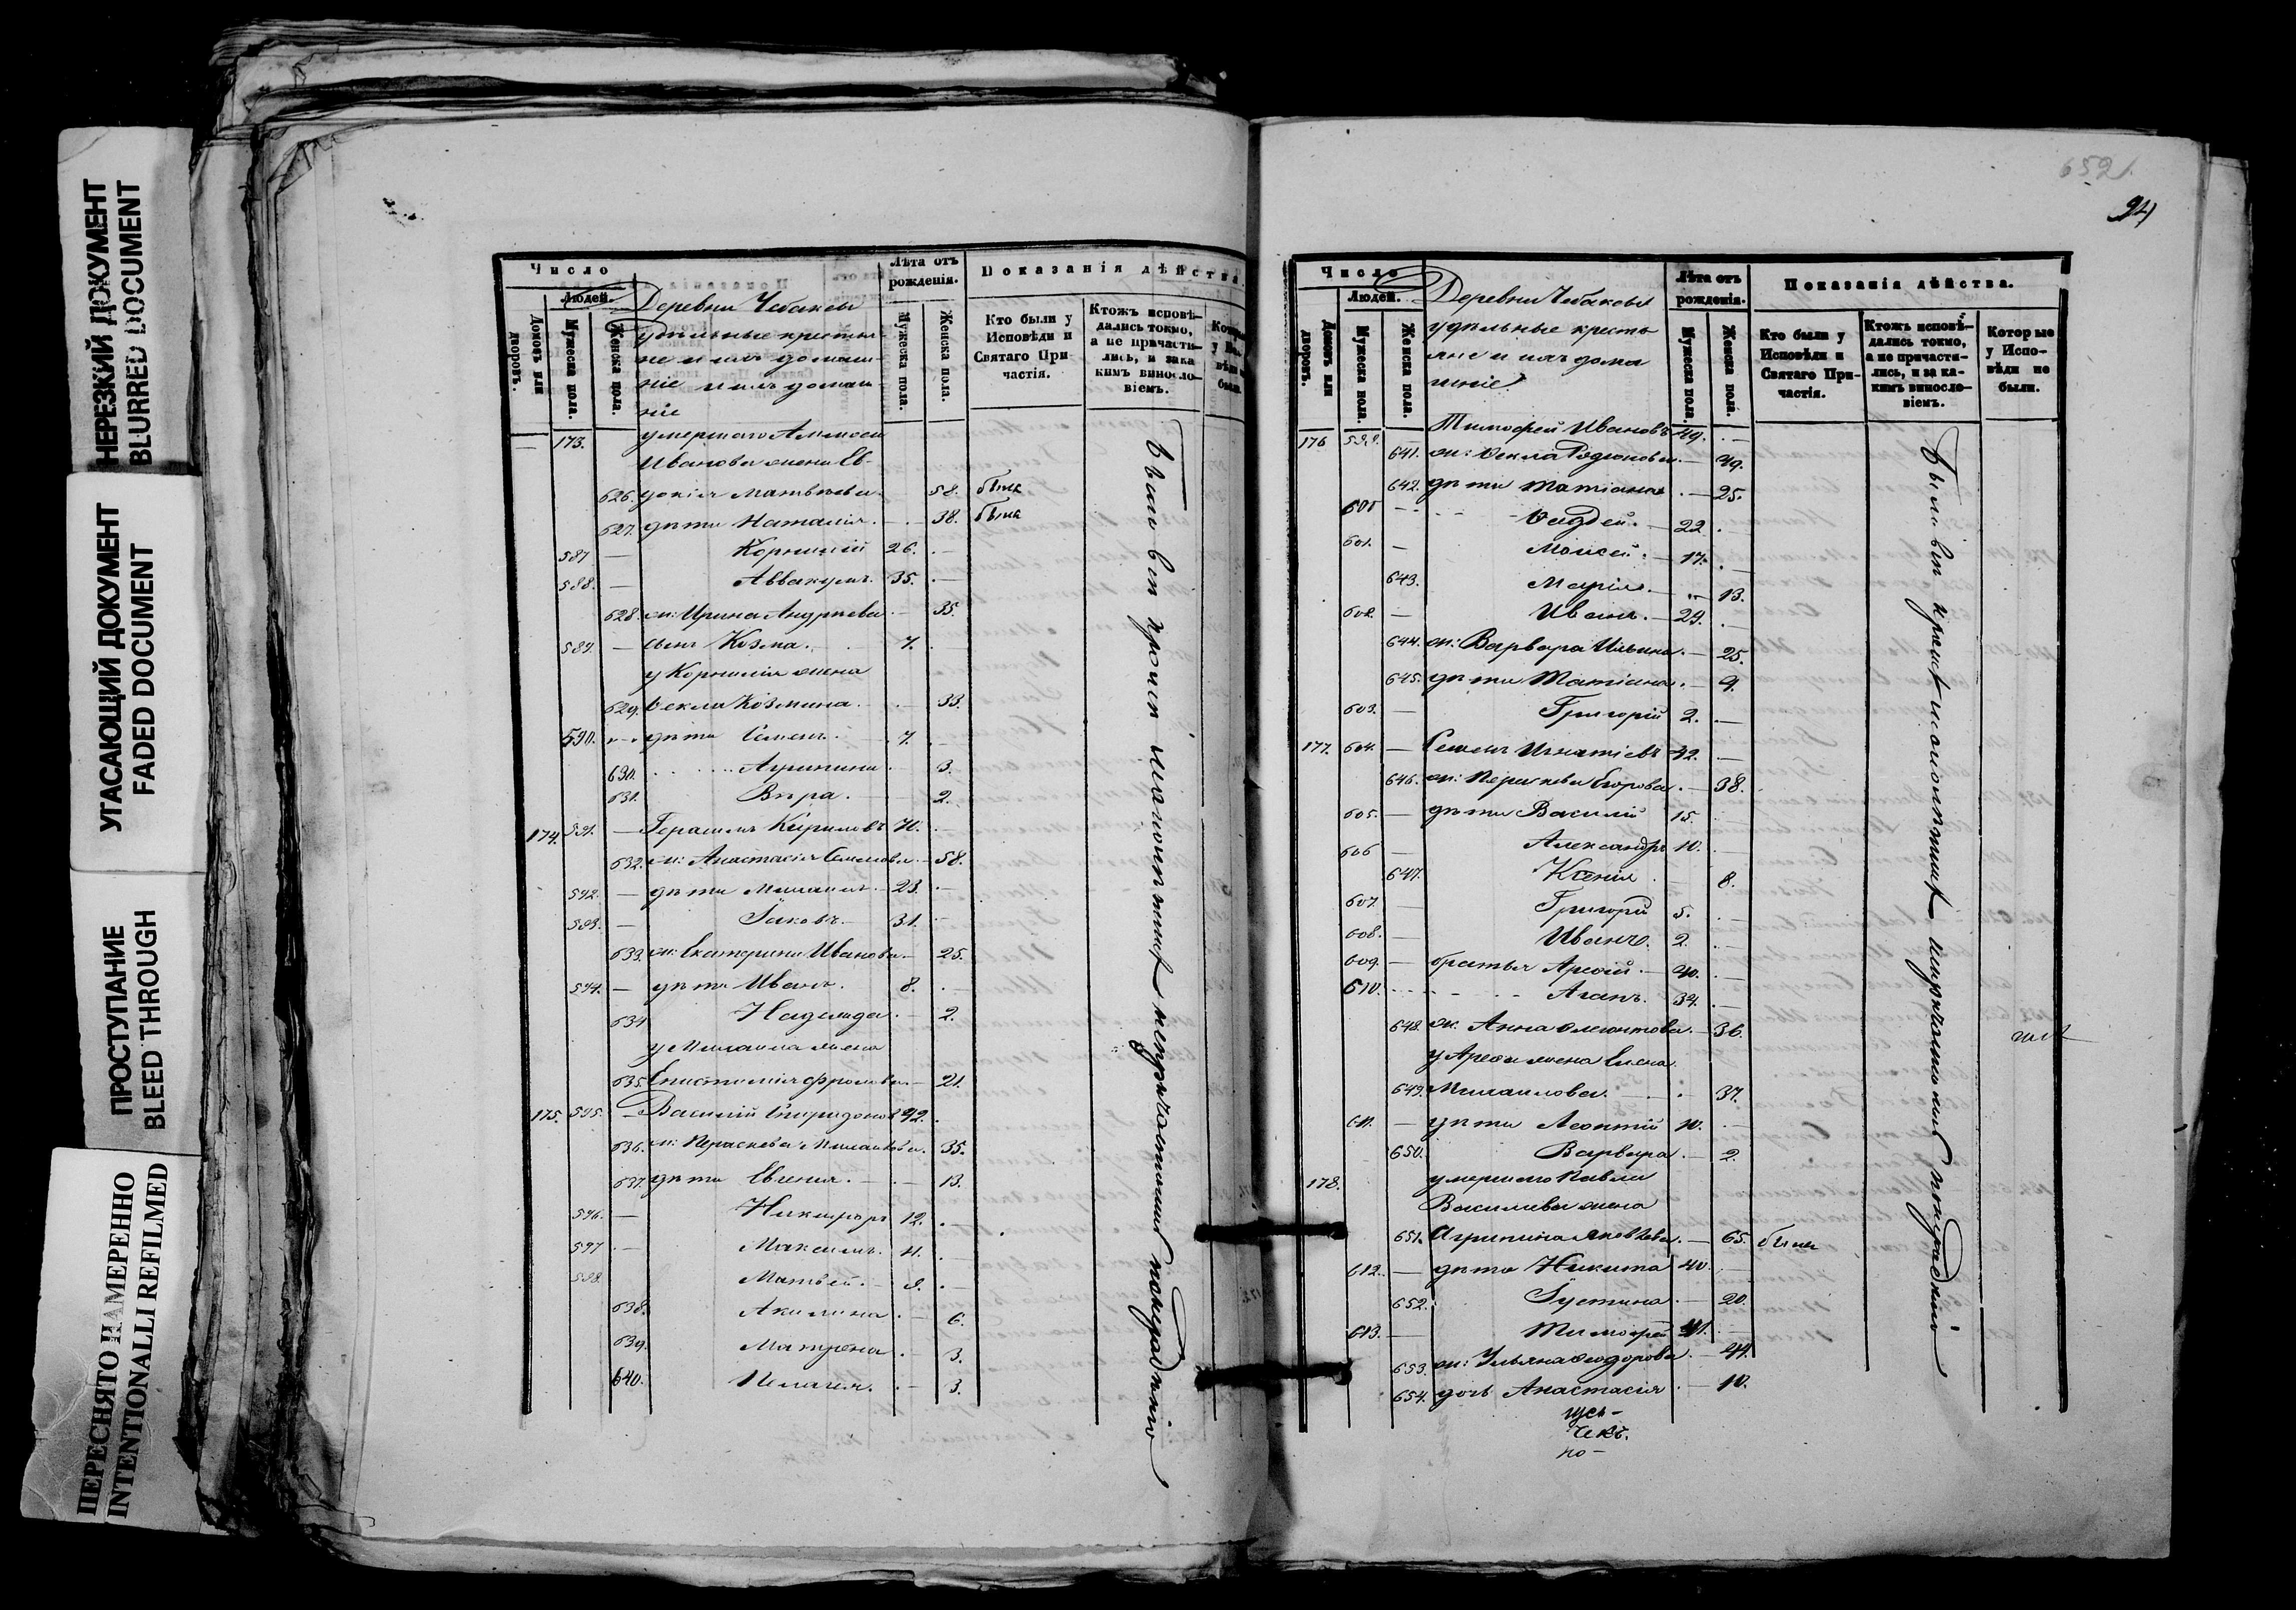 НЕРЕЗКИЙ ДОКУМЕНТ
BLURRED DOCUMENT
УГАСАЮЩИЙ ДОКУМЕНТ
FADED DOCUMENT
ПРОСТУПАНИЕ
BLEED THROUGH
ПЕРЕСНЯТО НАМЕРЕННО
INTENTIONALLI REFILMED
Число
Людей.
Домовъ или дворовъ.
Мужеска пола.
Женска пола.
Деревни Чебаковы
удѣльные крестья-
не и ихъ домаш-
ніе и ихъ домаш
ніе
Лѣта отъ рожденія.
Мужеска пола.
Женска пола.
Показанія дѣйства
Кто были у Исповѣди и Святаго При-частія.
Ктожъ исповѣ-дались токмо, а не причасти-лись, и зака кимъ винесло-віемъ.
173. умершаго
Иванова жена Ев-
626. Матвѣева 58. была
627. дѣти Наталія 38. была
587 Корнилій 26.
588. Аввакумъ 35.
628. ж: Ирина Андреева 35.
589. сынъ Козма 7.
у Корнилія жена
629. Ѳекла Козмина 33.
590. дѣти Семенъ 7.
630. Агрипина 3.
631. Вѣра 2.
174. 591. Герасимъ Кириловъ 70.
632. ж: Анастасія Семенова 58.
592. дѣти Михаилъ 23.
593. Іаковъ 31.
633. ж: Екатерина Иванова 25.
594. дѣти Иванъ 8.
634 Надежда 2.
у Михаила жена
635. Епистимія Фролова 21.
175. 595. Василій Спиридоновъ 42.
636. ж: Параскева Михайлова 35.
637. дѣти Евгенія 13.
596. Никифоръ 12.
597 Максимъ 11.
598. Матвей 9.
638. Акилина 6.
639. Матрена 3.
640. Пелагея 3.
652.
94
Число
Людей.
Домовъ или дворовъ.
Мужеска пола.
Женска пола.
Деревни Чебаковы
удѣльные кресть
яне и ихъ дома
шніе
Лѣта отъ рожденія.
Мужеска пола.
Женска пола.
Показанія дѣйства.
Кто были у Исповѣди и Святаго При-частія.
Ктожъ исповѣ-дались токмо, а не причасти-лись, и за ка-кимъ винесло-віемъ.
Которые у Испо-вѣди не были.
176 599. Тимофей Ивановъ 49.
641. ж: Ѳекла Родіонова 49.
642. дѣти Татіана 25.
600 Ѳадей 22.
601. Моисей 17.
643. Марія 13.
602. Иванъ 29.
644. ж: Варвара Ильина 25.
645. дѣти Татіана 9.
603. Григорій 2.
177. 604. Семенъ Игнатіевъ 42.
646. ж: Параскева Егорова 38.
605. дѣти Василій 15.
606 Александръ 10.
647. Ксенія 8.
607. Григорій 5.
608. Иванъ 2.
609. братья Арсѳій 40.
610. Агапъ 34.
648. ж: Анна Леонтова 36.
жена Елена
649. Михаилова 37.
611. дѣти Леонтій 10.
650. Варвара 2.
178. умершаго Павла
Васильева жена
651. Агрипина Яковлева 65. была
612. дѣти Никита 40.
652. Іустина 20.
613. Тимофей 41.
653. ж: Ульяна Ѳеодорова 44.
654. дочь Анастасія 10.